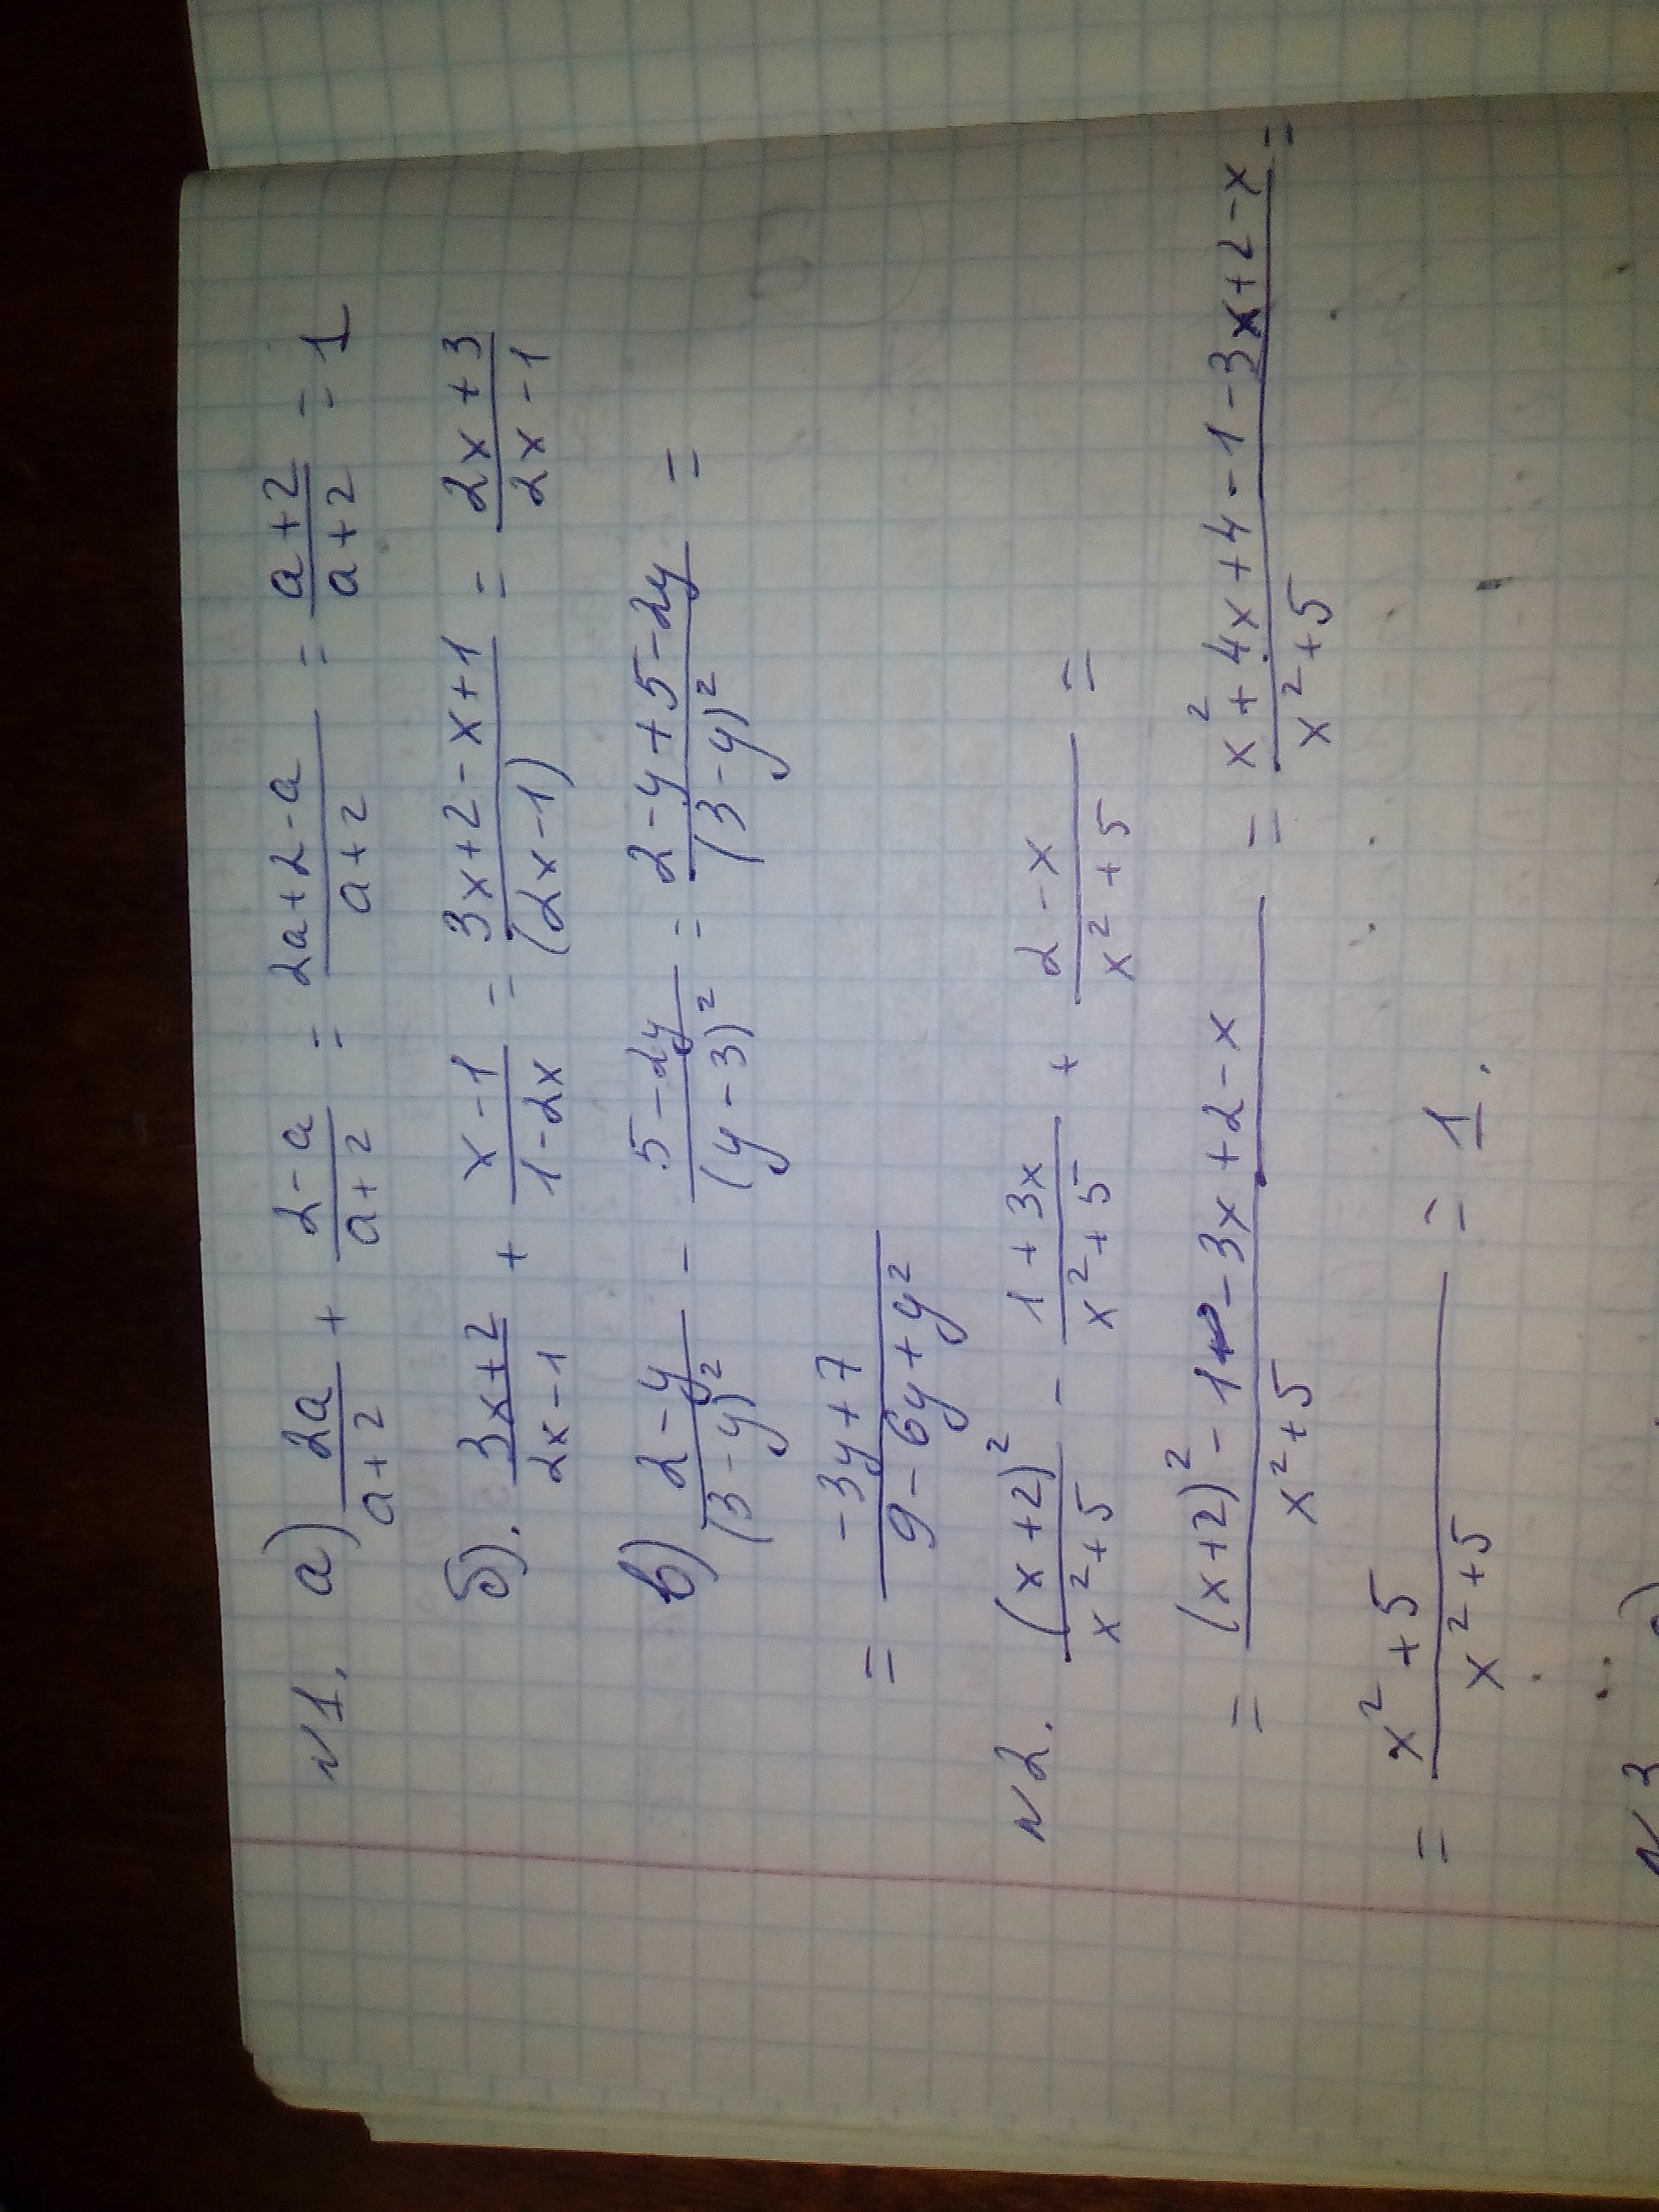 N1. а) 2a/(a+2) + (2-a)/(a+2) = (2a+2-a)/(a+2) = (a+2)/(a+2) = 1
б). (3x+2)/(2x-1) + (x-1)/(1-2x) = (3x+2-x+1)/(2x-1) = (2x+3)/(2x-1)
в) (2-y)/(3-y)² - (5-2y)/(y-3)² = (2-y+5-2y)/(3-y)² =
= (-3y+7)/(9-6y+y²)
N2. (x+2)²/(x²+5) - (1+3x)/(x²+5) + (2-x)/(x²+5) =
= ((x+2)²-1-3x+2-x)/(x²+5) = (x²+4x+4-1-3x+2-x)/(x²+5) =
= (x²+5)/(x²+5) = 1.
N3